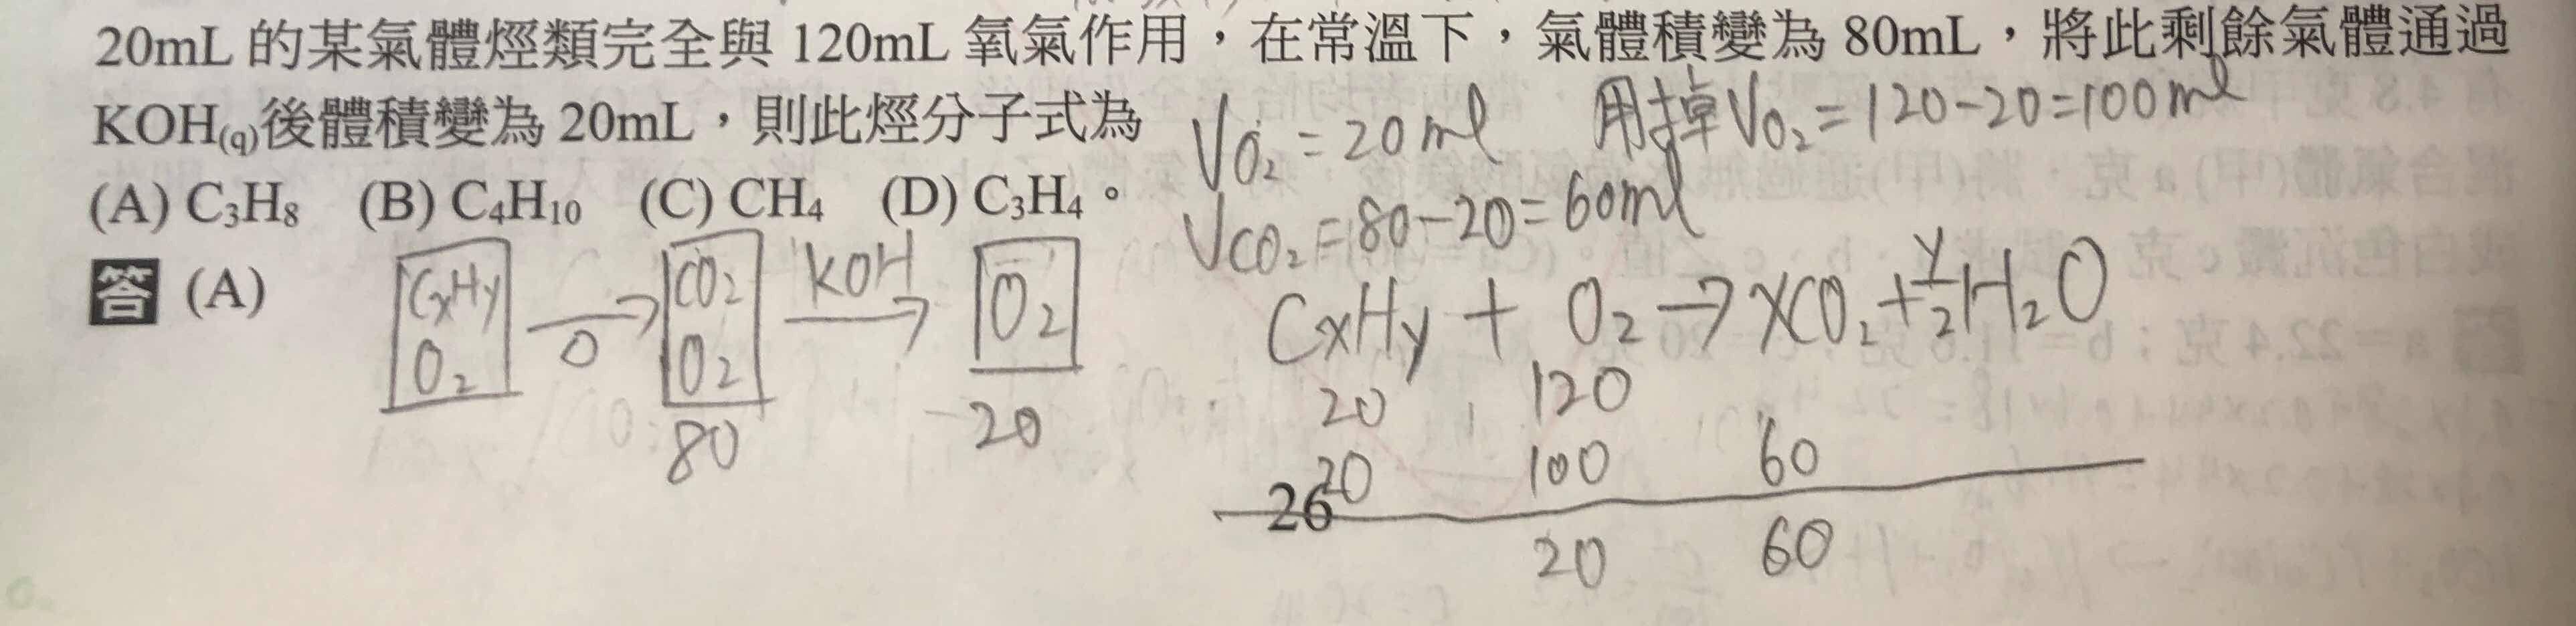 20mL 的某氣體烴類完全與 120mL 氧氣作用，在常溫下，氣體積變為 80mL，將此剩餘氣體通過
KOH(q)後體積變為 20mL，則此烴分子式為
(A) C₃H₈ (B) C₄H₁₀ (C) CH₄ (D) C₃H₄。
答 (A)
CxHy
O₂
→
O
CO₂
O₂
80
KOH
→
O₂
20
VO₂ = 20 ml 用掉VO₂ = 120-20=100ml
VCO₂ = 80-20= 60ml
CxHy + O₂ → XCO₂ + y/2 H₂O
20 120
20 100 60
26
20 60